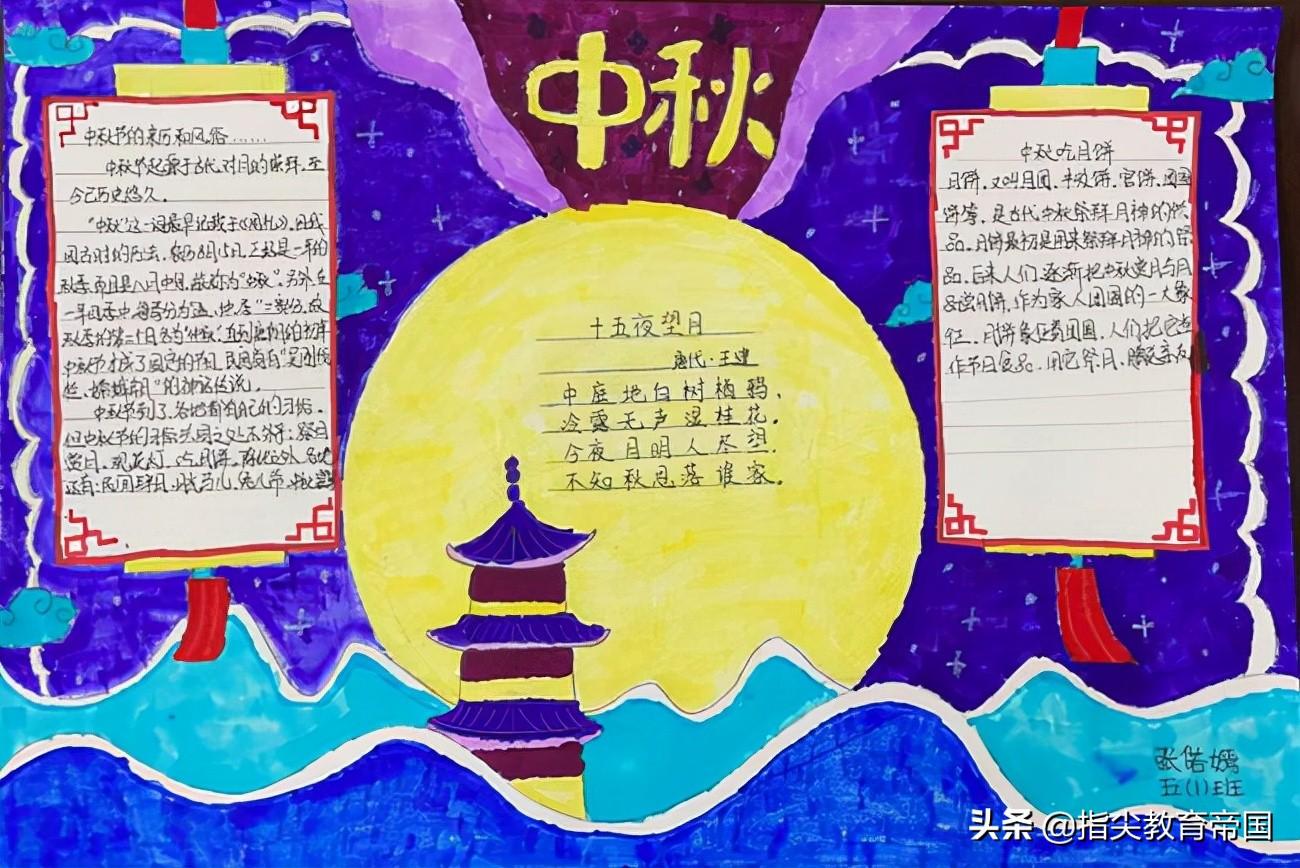 中秋
中秋节的来历和风俗……
中秋节起源于古代对月的崇拜,至
今已历史悠久。
"中秋"这一词最早记载于《周礼》。因我
国古时的历法,农历8月15日,正好是一年的
秋季而且是八月中旬,故称为"中秋"。另外
一年四季中每季分为孟、仲、季"三部分,故
秋季的第二个月名为"仲秋",直到唐朝的初年
中秋节才成了固定的节日,民间更有"吴刚伐
桂、嫦娥奔月"的神话传说。
中秋节到了,各地都有自己的习俗。
但中秋节的习俗共同之处不外乎:祭月
赏月、观花灯、吃月饼,
还有:民间拜月、月光马儿、兔儿爷、
十五夜望月
唐代·王建
中庭地白树栖鸦,
冷露无声湿桂花。
今夜月明人尽望,
不知秋思落谁家。
中秋吃月饼
月饼,又叫月团、丰收饼、宫饼、团圆
饼等,是古代中秋祭拜月神的供
品。月饼最初是用来祭拜月神的祭
品,后来人们逐渐把中秋赏月与月
品尝月饼,作为家人团圆的一大象
征。月饼象征着团圆,人们把它当
作节日食品,用它祭月、赠送亲友
五(1)班
头条 @指尖教育帝国